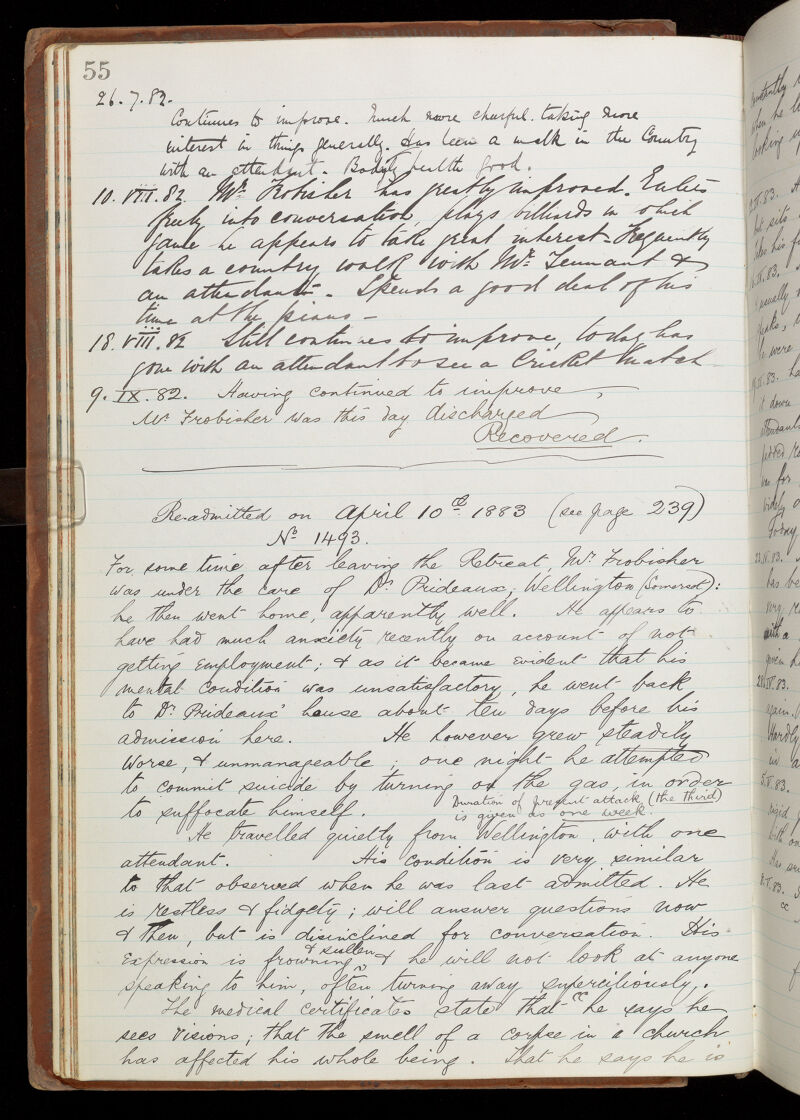 55
26.7.82.
Continues to improve. Much more cheerful. taking more
interest in things generally. Has been a walk in the Country
with an attendant. Bodily health good.
10.VIII.82 Mr. Frobisher has greatly improved. Enters
freely into conversation, plays billiards in which
game he appears to take great interest - Frequently
takes a country walk with Mr. Tennant &
an attendant - Spends a good deal of his
time at the piano -
18.VIII.82 Still continues to improve, today has
gone with an attendant to see a Cricket match
9.IX.82. Having continued to improve,
Mr Frobisher was this day discharged
Recovered.
Re-admitted on April 10th 1883 (see page 239)
No 1493.
For some time after leaving the Retreat, Mr Frobisher
was under the care of Dr Prideaux, Wellington (Somerset):
he then went home, apparently well. He appears to
have had much anxiety recently on account of not
getting employment; & as it became evident that his
mental condition was unsatisfactory, he went back
to Dr Prideaux' house about ten days before his
admission here. He however grew steadily
worse, & unmanageable; one night he attempted
to commit suicide by turning on the gas, in order
to suffocate himself. Duration of present attack (the third)
is given as one week.
He travelled quietly from Wellington, with one
attendant. His condition is very similar
to that observed when he was last admitted. He
is restless & fidgety; will answer questions now
& then, but is disinclined for conversation. His
expression is frowning & sullen & he will not look at anyone
speaking to him, often turning away superciliously.
The medical certificates state that "he says he
sees visions; that the smell of a corpse in a church
has affected his whole being. That he says he is